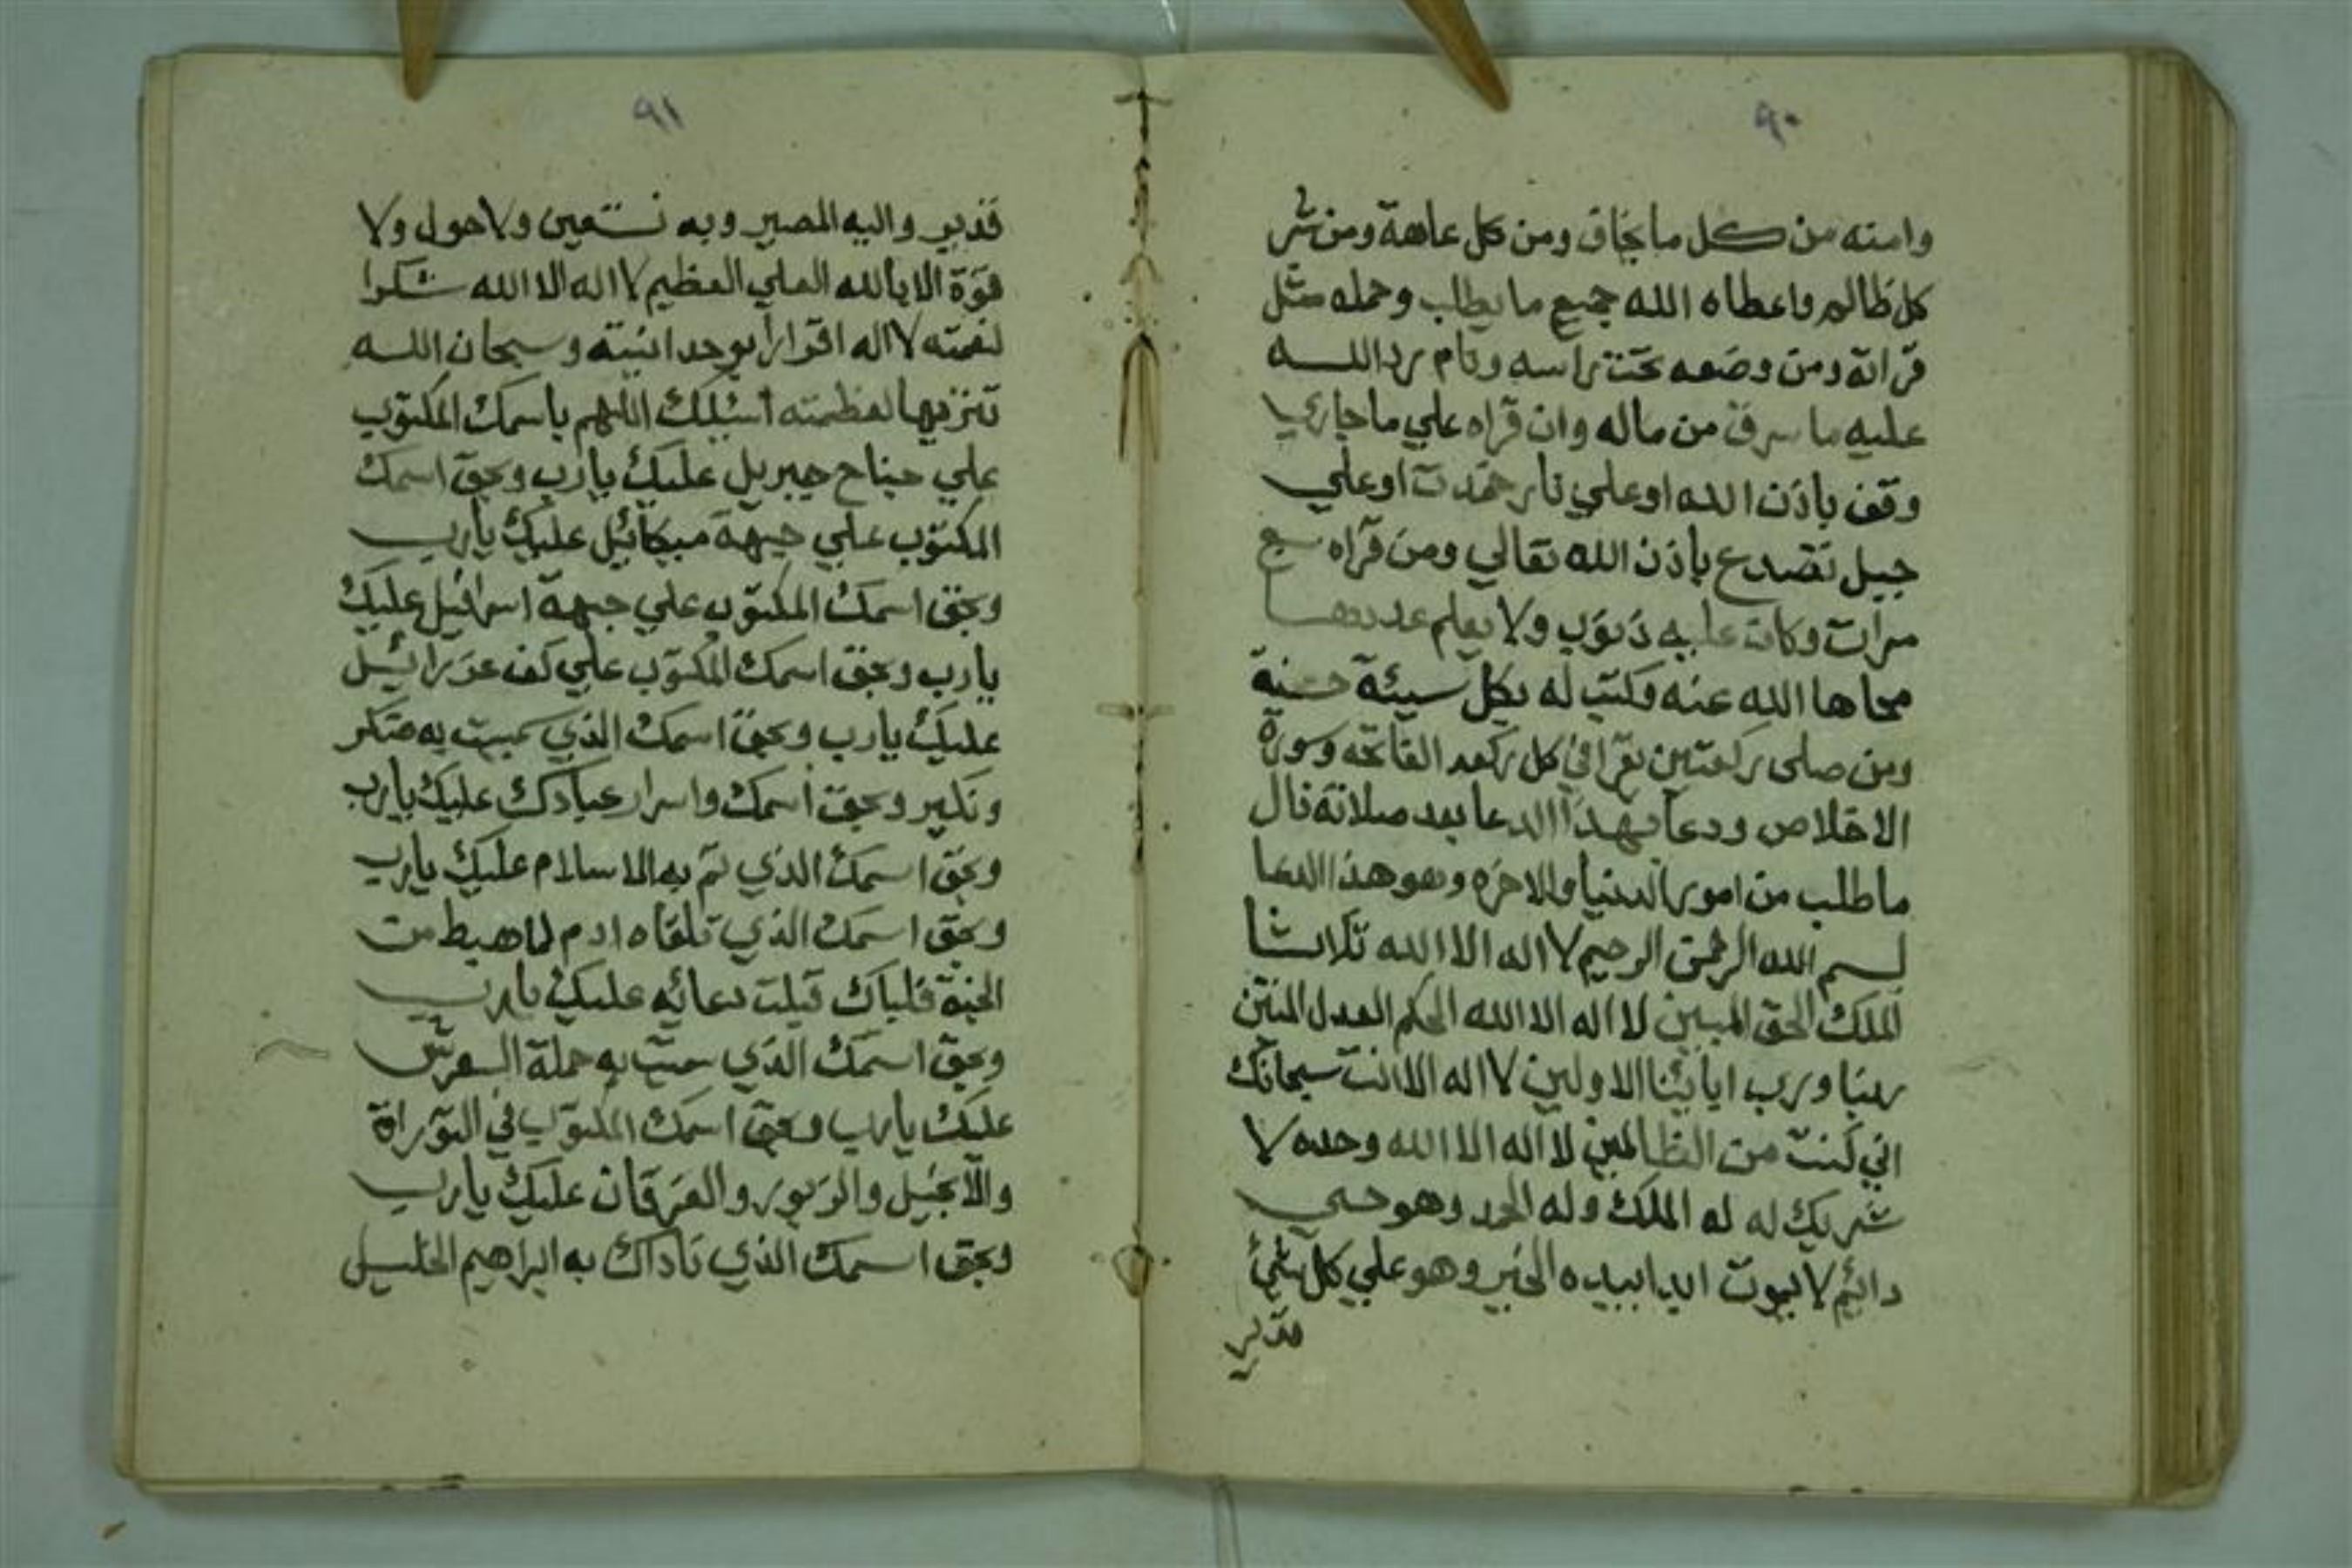 ٩٠
وامنه من كل ما يخاف ومن كل عاهة ومن شر
كل ظالم واعطاه الله جميع ما يطلب وحمله مثل
قراته ومن وضعه تحت راسه ونام رد الله
عليه ما سرق من ماله وان قراه علي ما جاريا
وقف باذن الله او علي نار خمدت او علي
جبل تصدع باذن الله تعالي ومن قراه سبع
مرات وكانت عليه ذنوب ولا يعلم عددها
محاها الله عنه وكتب له بكل سيئة حسنة
ومن صلى ركعتين يقرا في كل ركعه الفاتحه وسورة
الاخلاص ودعا بهذا الدعا بعد صلاته نال
ما طلب من امور الدنيا والاخره وهو هذا الدعا
بسم الله الرحمن الرحيم لا اله الا الله ثلاثا
الملك الحق المبين لا اله الا الله الحكم العدل المتين
ربنا ورب ابائنا الاولين لا اله الا انت سبحانك
اني كنت من الظالمين لا اله الا الله وحده لا
شريك له له الملك وله الحمد وهو حي
دائم لا يموت ابدا بيده الخير وهو علي كل شيء
قدير
٩١
قدير واليه المصير وبه نستعين ولا حول ولا
قوة الا بالله العلي العظيم لا اله الا الله شكرا
لنعمته لا اله اقرارا بوحدانيته وسبحان الله
تنزيها لعظمته أسئلك اللهم باسمك المكتوب
علي جناح جبريل عليك يارب وبحق اسمك
المكتوب علي جبهة ميكائيل عليك يارب
وبحق اسمك المكتوب علي جبهة اسرافيل عليك
يارب وبحق اسمك المكتوب علي كف عزرائيل
عليك يارب وبحق اسمك الذي سميت به منكر
ونكير وبحق اسمك واسرار عبادك عليك يارب
وبحق اسمك الذي تم به الاسلام عليك يارب
وبحق اسمك الذي تلقاه ادم لما هبط من
الجنة فلباك قبلت دعائه عليك يارب
وبحق اسمك الذي به حملة العرش
عليك يارب وبحق اسمك المكتوب في التوراة
والانجيل والزبور والفرقان عليك يارب
وبحق اسمك الذي ناداك به ابراهيم الخليل